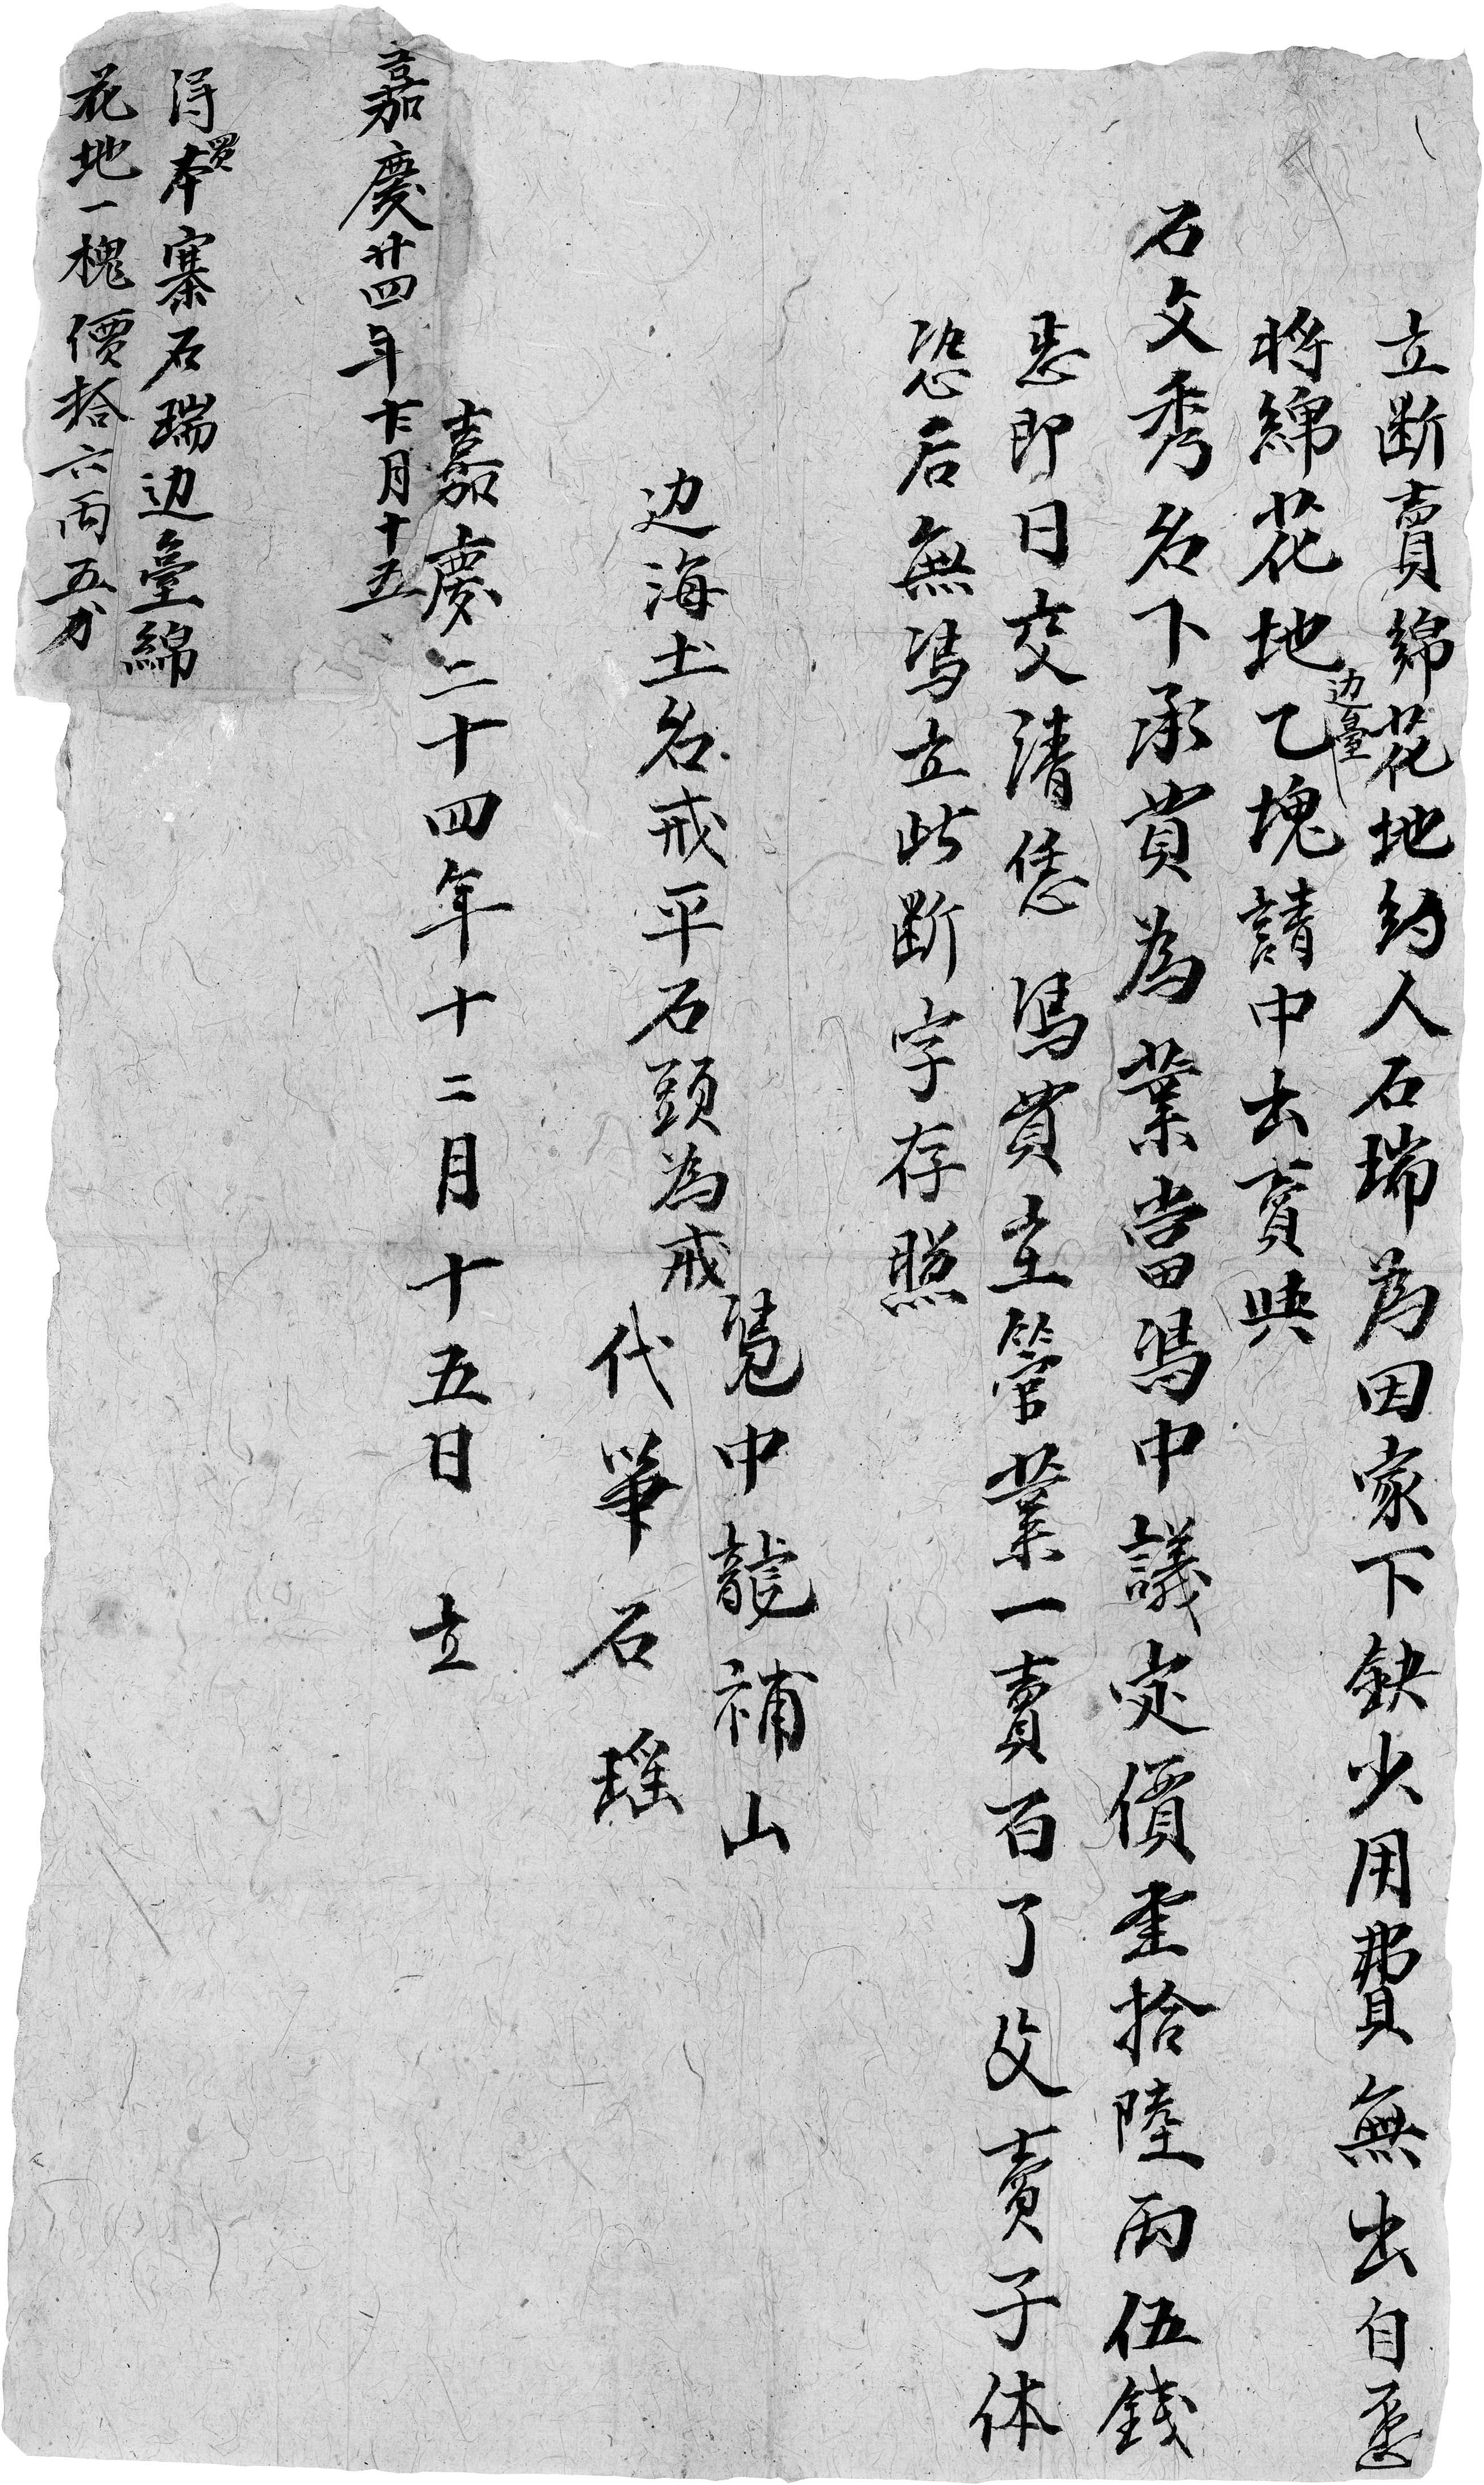 立断賣綿花地約人石瑞為因家下缺少用費無出自愿
将綿花地边臺乙塊請中出賣與
石文秀名下承買為業當馮中議定價艮拾陸両伍錢
悉即日交清恁馮買主管業一賣百了父賣子休
恐后無馮立此断字存照
边海土名戒平石頭為戒
凴中龍補山
代筆石瑶
嘉慶二十四年十二月十五日 立
嘉慶廿四年十二月十五
得買本寨石瑞边臺綿
花地一槐價拾六両五分